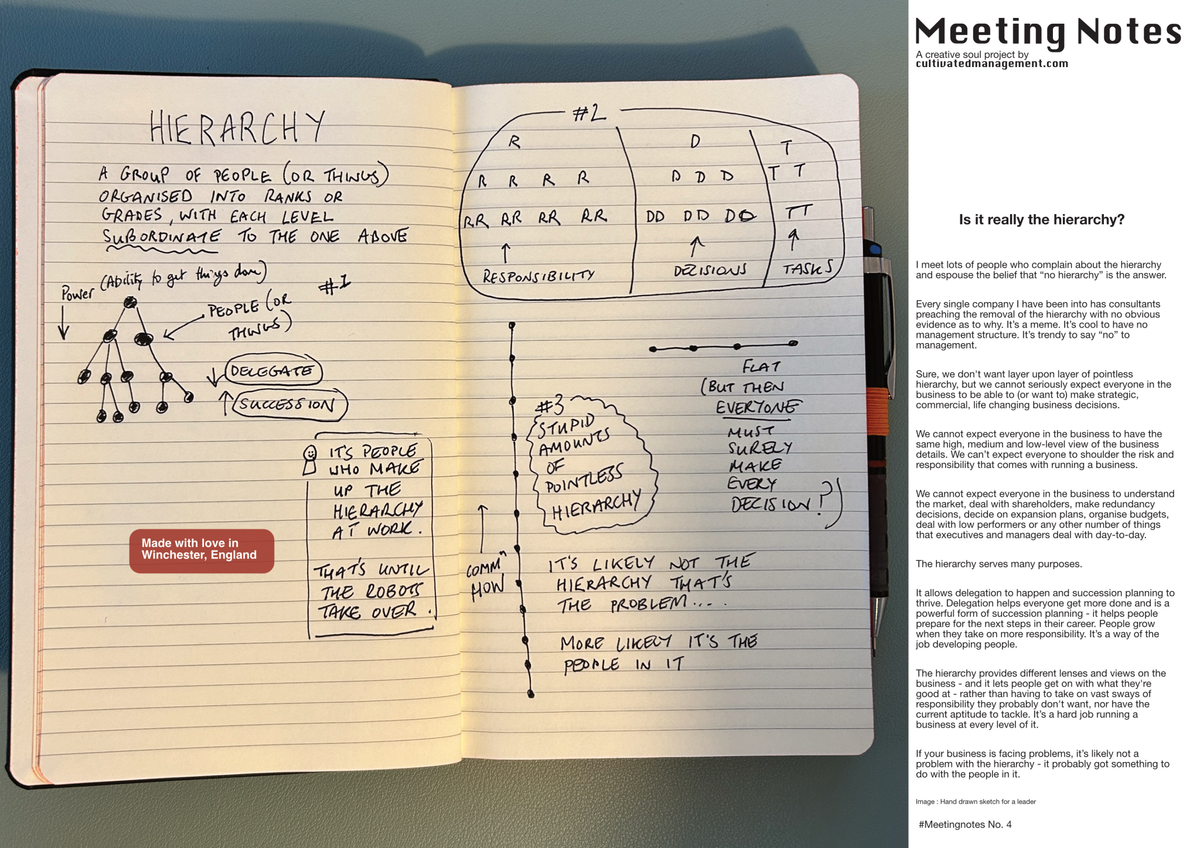 HIERARCHY
A GROUP OF PEOPLE (OR THINGS)
ORGANISED INTO RANKS OR
GRADES, WITH EACH LEVEL
SUBORDINATE TO THE ONE ABOVE
Power (Ability to get things done)
#1
PEOPLE (OR
THINGS)
DELEGATE
SUCCESSION
IT'S PEOPLE
WHO MAKE
UP THE
HIERARCHY
AT WORK.
THAT'S UNTIL
THE ROBOTS
TAKE OVER.
Made with love in
Winchester, England
#2
R
R R R R
RR RR RR RR
RESPONSIBILITY
D
D D D
DD DD DD
DECISIONS
T
T T
TT
TASKS
#3
STUPID
AMOUNTS
OF
POINTLESS
HIERARCHY
COMM"
FLAT
(BUT THEN
EVERYONE
MUST
SURELY
MAKE
EVERY
DECISION?)
IT'S LIKELY NOT THE
HIERARCHY THAT'S
THE PROBLEM....
MORE LIKELY IT'S THE
PEOPLE IN IT
Meeting Notes
A creative soul project by
cultivatedmanagement.com
Is it really the hierarchy?
I meet lots of people who complain about the hierarchy
and espouse the belief that “no hierarchy” is the answer.
Every single company I have been into has consultants
preaching the removal of the hierarchy with no obvious
evidence as to why. It’s a meme. It’s cool to have no
management structure. It’s trendy to say “no” to
management.
Sure, we don't want layer upon layer of pointless
hierarchy, but we cannot seriously expect everyone in the
business to be able to (or want to) make strategic,
commercial, life changing business decisions.
We cannot expect everyone in the business to have the
same high, medium and low-level view of the business
details. We can’t expect everyone to shoulder the risk and
responsibility that comes with running a business.
We cannot expect everyone in the business to understand
the market, deal with shareholders, make redundancy
decisions, decide on expansion plans, organise budgets,
deal with low performers or any other number of things
that executives and managers deal with day-to-day.
The hierarchy serves many purposes.
It allows delegation to happen and succession planning to
thrive. Delegation helps everyone get more done and is a
powerful form of succession planning - it helps people
prepare for the next steps in their career. People grow
when they take on more responsibility. It’s a way of the
job developing people.
The hierarchy provides different lenses and views on the
business - and it lets people get on with what they're
good at - rather than having to take on vast sways of
responsibility they probably don't want, nor have the
current aptitude to tackle. It’s a hard job running a
business at every level of it.
If your business is facing problems, it’s likely not a
problem with the hierarchy - it probably got something to
do with the people in it.
Image : Hand drawn sketch for a leader
#Meetingnotes No. 4